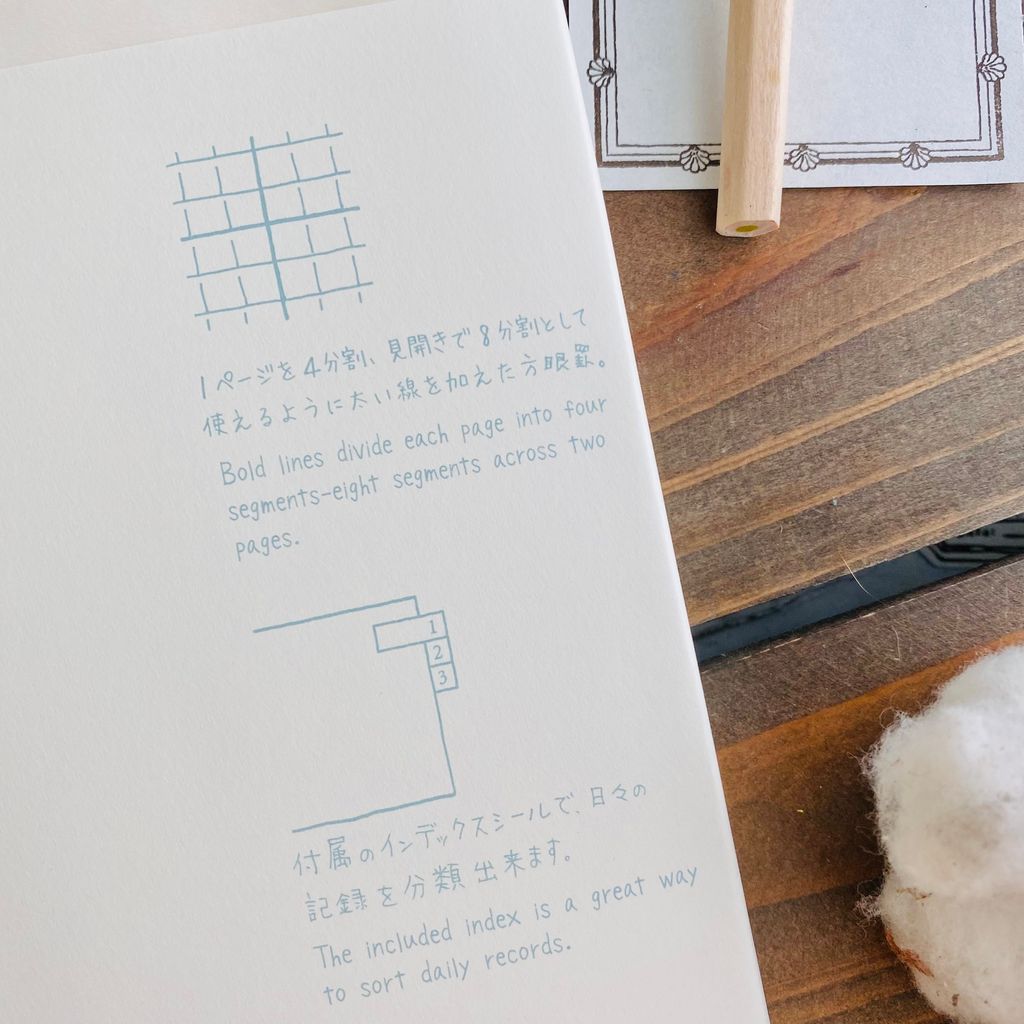 1ページを4分割、見開きで8分割として
使えるように太い線を加えた方眼罫。
Bold lines divide each page into four
segments-eight segments across two
pages.
1
2
3
付属のインデックスシールで、日々の
記録を分類出来ます。
The included index is a great way
to sort daily records.